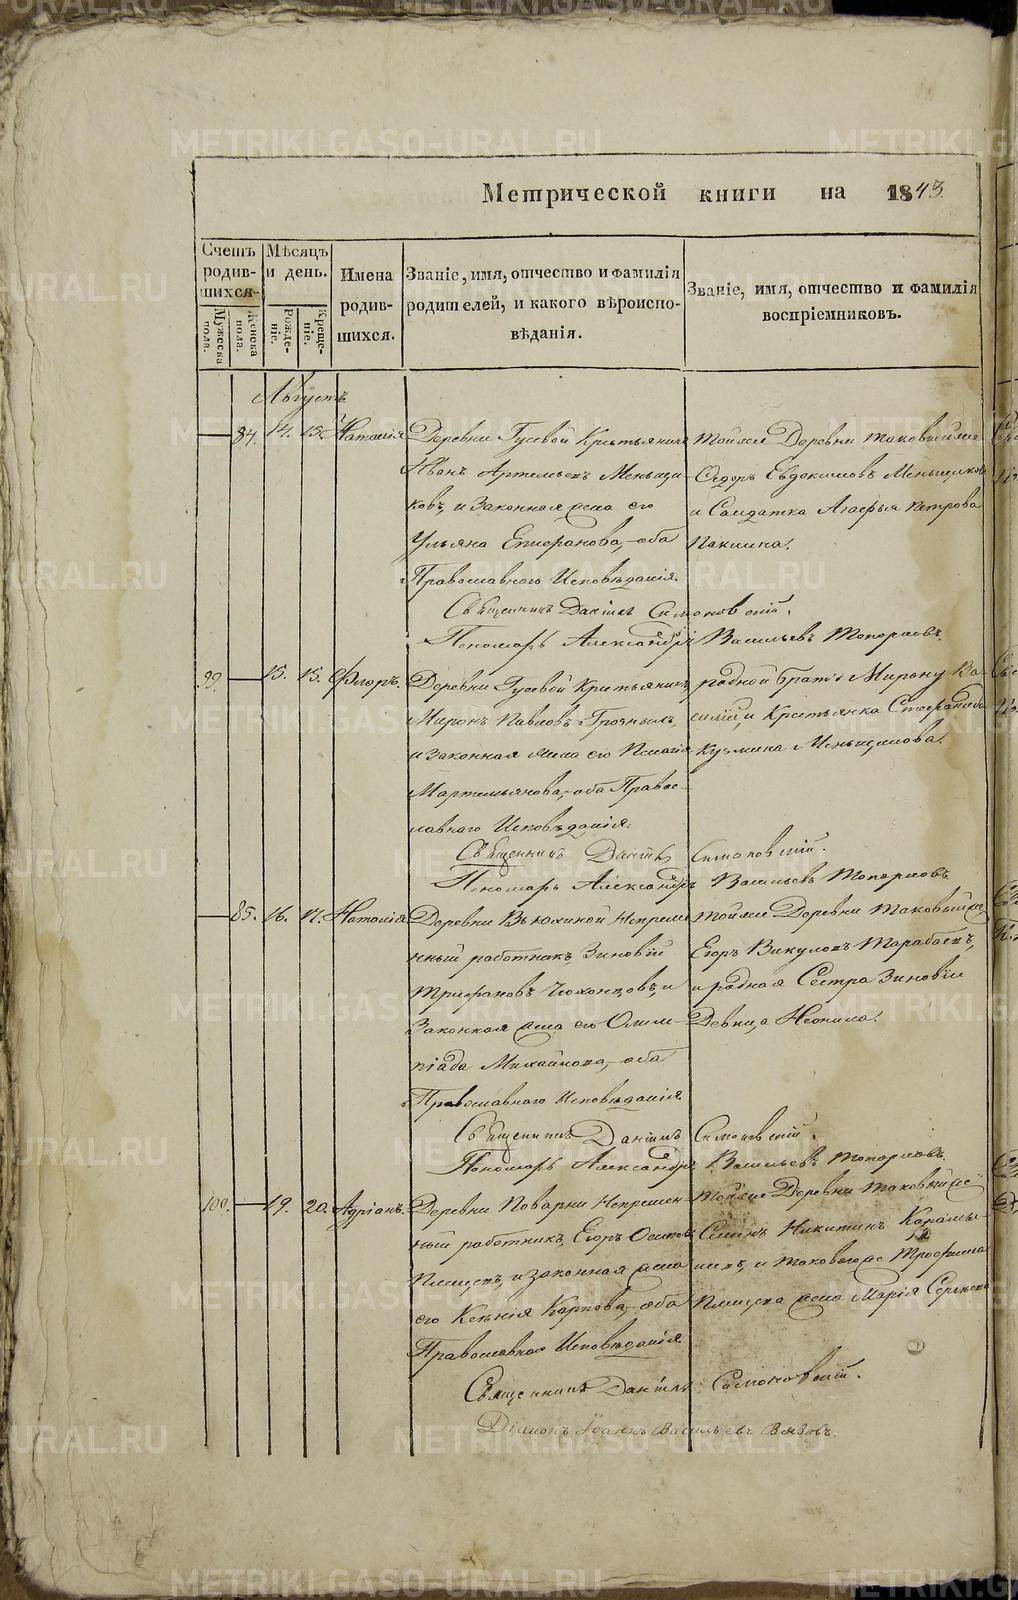 Метрической книги на 1843.
Счетъ родив-шихся
Мужеска пола.
Женска пола.
Мѣсяцъ и день.
Рожде-ніе.
Креще-ніе.
Имена родив-шихся.
Званіе, имя, отчество и фамилія родителей, и какого вѣроиспо-вѣданія.
Званіе, имя, отчество и фамилія воспріемниковъ.
Августъ
84. 14. 15. Наталія Деревни Гусевой Крестьянинъ тойже Деревни таковыйже
Иванъ Артемьевъ Меньщи- Сидоръ Евдокимовъ Меньщиковъ
ковъ, и Законная жена его и Салдатка Агафья Петрова
Ульяна Епифанова, оба
Православнаго Исповѣданія.
Священникъ Даніилъ Симоновскій.
Пономарь Александръ Васильевъ Топорковъ.
99. 15. 15. Флоръ. Деревни Гусевой Крестьянинъ, родной братъ Мирону Ва-
Миронъ Павловъ силій, и Крестьянка Стефанида
и Законная жена его Пелагія Кузмина Меньщикова.
Мартемьянова, оба Право-
славнаго Исповѣданія.
Священникъ Даніилъ Симоновскій.
Пономарь Александръ Васильевъ Топорковъ.
85. 16. 17. Наталія Деревни Вьюхиной Непреме- тойже Деревни таковыйже
нный работникъ, Зиновій Егоръ Викуловъ Тарабаевъ,
Трифановъ и родная Сестра Зиновіи
Законная жена его Олим- Девица Неонила.
піада Михайлова, оба
Православнаго Исповѣданія.
Священникъ Даніилъ Симоновскій.
Пономарь Александръ Васильевъ Топорковъ.
100. 19. 20. Адріанъ. Деревни Поварни Непремен- тойже Деревни таковыйже
ный работникъ, Егоръ Осиповъ Никитинъ
и законная жена и таковагоже Трофима
его Ксенія Карпова, оба жена Марія
Православнаго Исповѣданія.
Священникъ Даніилъ Симоновскій.
Діаконъ Іоаннъ Васильевъ
METRIKI.GASO-URAL.RU